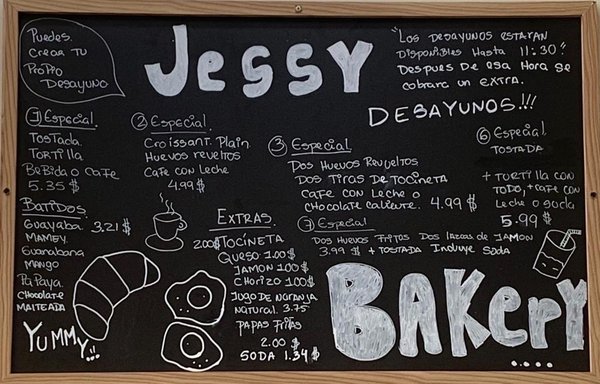 Puedes.
Crear Tu
Propio
Desayuno
Jessy
"Los desayunos estaran
disponibles Hasta 11:30"
Despues de esa Hora se
cobrara un extra.
DESAYUNOS!!!
1 Especial.
Tostada.
Tortilla
Bebida o cafe
5.35 $
2 Especial
Croissant. Plain
Huevos reveltos
Cafe con Leche
4.99 $
3 Especial
Dos Huevos Revueltos
Dos Tiras de Tocineta
Cafe con Leche o
Chocolate caliente. 4.99 $
6 Especial
Tostada
+ Tortilla con
todo, + cafe con
Leche o soda
5.99 $
7 Especial
Dos Huevos Fritos Dos lascas de Jamon
3.99 $ + Tostada Incluye Soda
Batidos.
Guayaba. 3.21 $
Mamey.
Guanabana
Mango
Papaya
Chocolate
Malteada
Extras
2.00$ Tocineta
Queso 1.00$
Jamon 1.00$
Chorizo 1.00$
Jugo de Naranja
Natural. 3.75
Papas Fritas
2.00 $
Soda 1.34 $
Yummy...!!
BAKerY
....